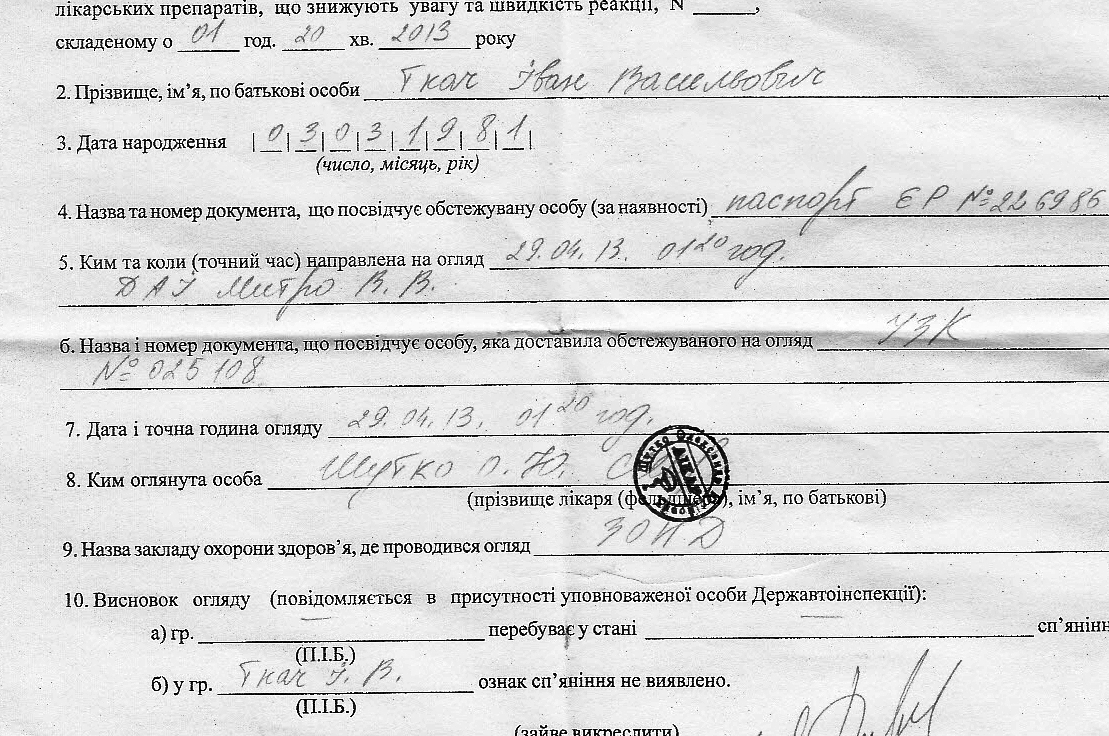 лікарських препаратів, що знижують увагу та швидкість реакції, N ______,
складеному о 01 год. 20 хв. 2013 року
2. Прізвище, ім’я, по батькові особи Ткач Іван Васильович
3. Дата народження |0|3|0|3|1|9|8|1|
(число, місяць, рік)
4. Назва та номер документа, що посвідчує обстежувану особу (за наявності) паспорт ЄР №226986
5. Ким та коли (точний час) направлена на огляд 29.04.13. 01 20 год.
ДАІ Митро В. В.
6. Назва і номер документа, що посвідчує особу, яка доставила обстежуваного на огляд УЗК
№ 025108
7. Дата і точна година огляду 29.04.13. 01 20 год.
8. Ким оглянута особа Шутко О. Ю.
Шутко Олександр ЛІКАР
(прізвище лікаря (фельдшера), ім’я, по батькові)
9. Назва закладу охорони здоров’я, де проводився огляд ЗОНД
10. Висновок огляду (повідомляється в присутності уповноваженої особи Державтоінспекції):
а) гр. ______ перебуває у стані ______ сп’янін
(П.І.Б.)
б) у гр. Ткач І. В. ознак сп’яніння не виявлено.
(П.І.Б.)
(зайве викреслити)